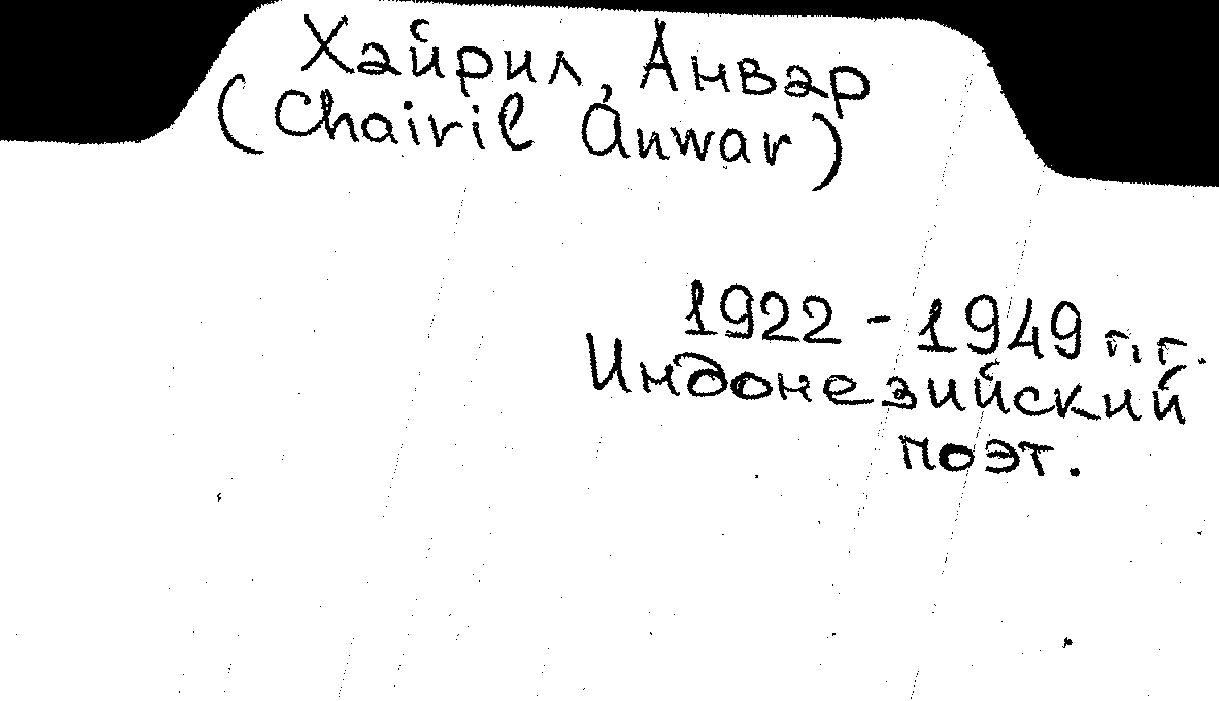 Хайрил, Анвар
(Chairil Anwar)
1922 - 1949 г.г.
Индонезийский
поэт.